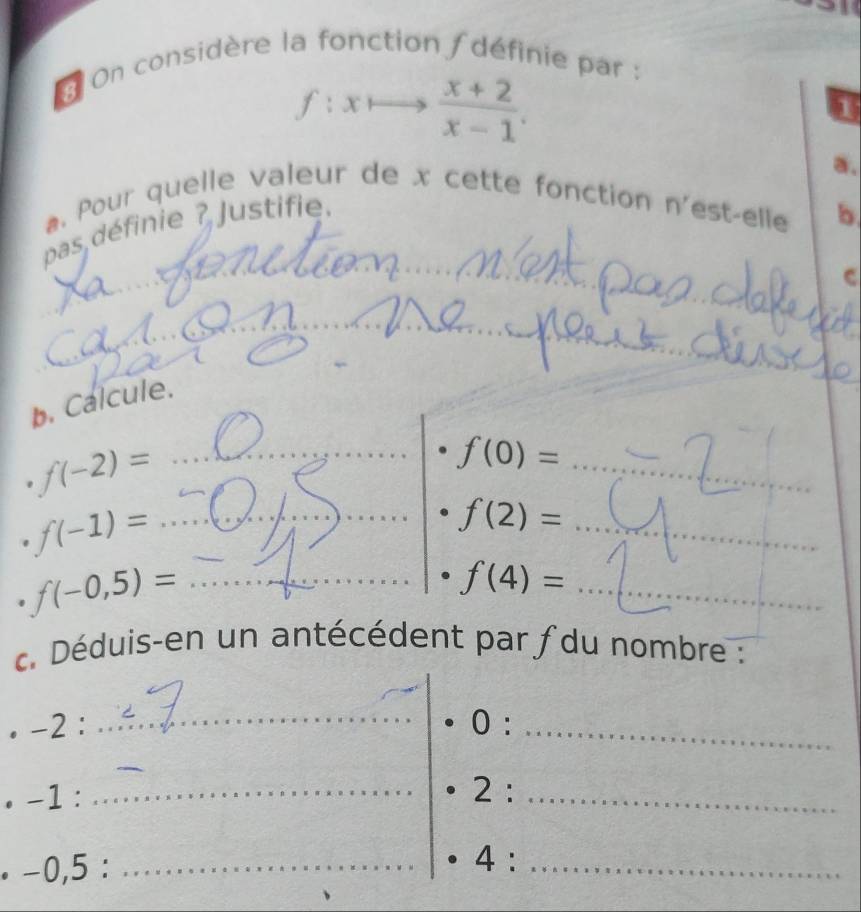 8 On considère la fonction f définie par :
f : x ⟼ (x + 2)/(x − 1).
a. Pour quelle valeur de x cette fonction n'est-elle
pas définie ? Justifie.
La fonction n'est pas
car on ne peut
par 0.
b. Calcule.
• f(−2) = 0
• f(0) = −2
• f(−1) = −0,5
• f(2) = 4
• f(−0,5) = −1
• f(4) = 2
c. Déduis-en un antécédent par f du nombre :
• −2 :
• 0 :
• −1 :
• 2 :
• −0,5 :
• 4 :
1
a.
b.
c